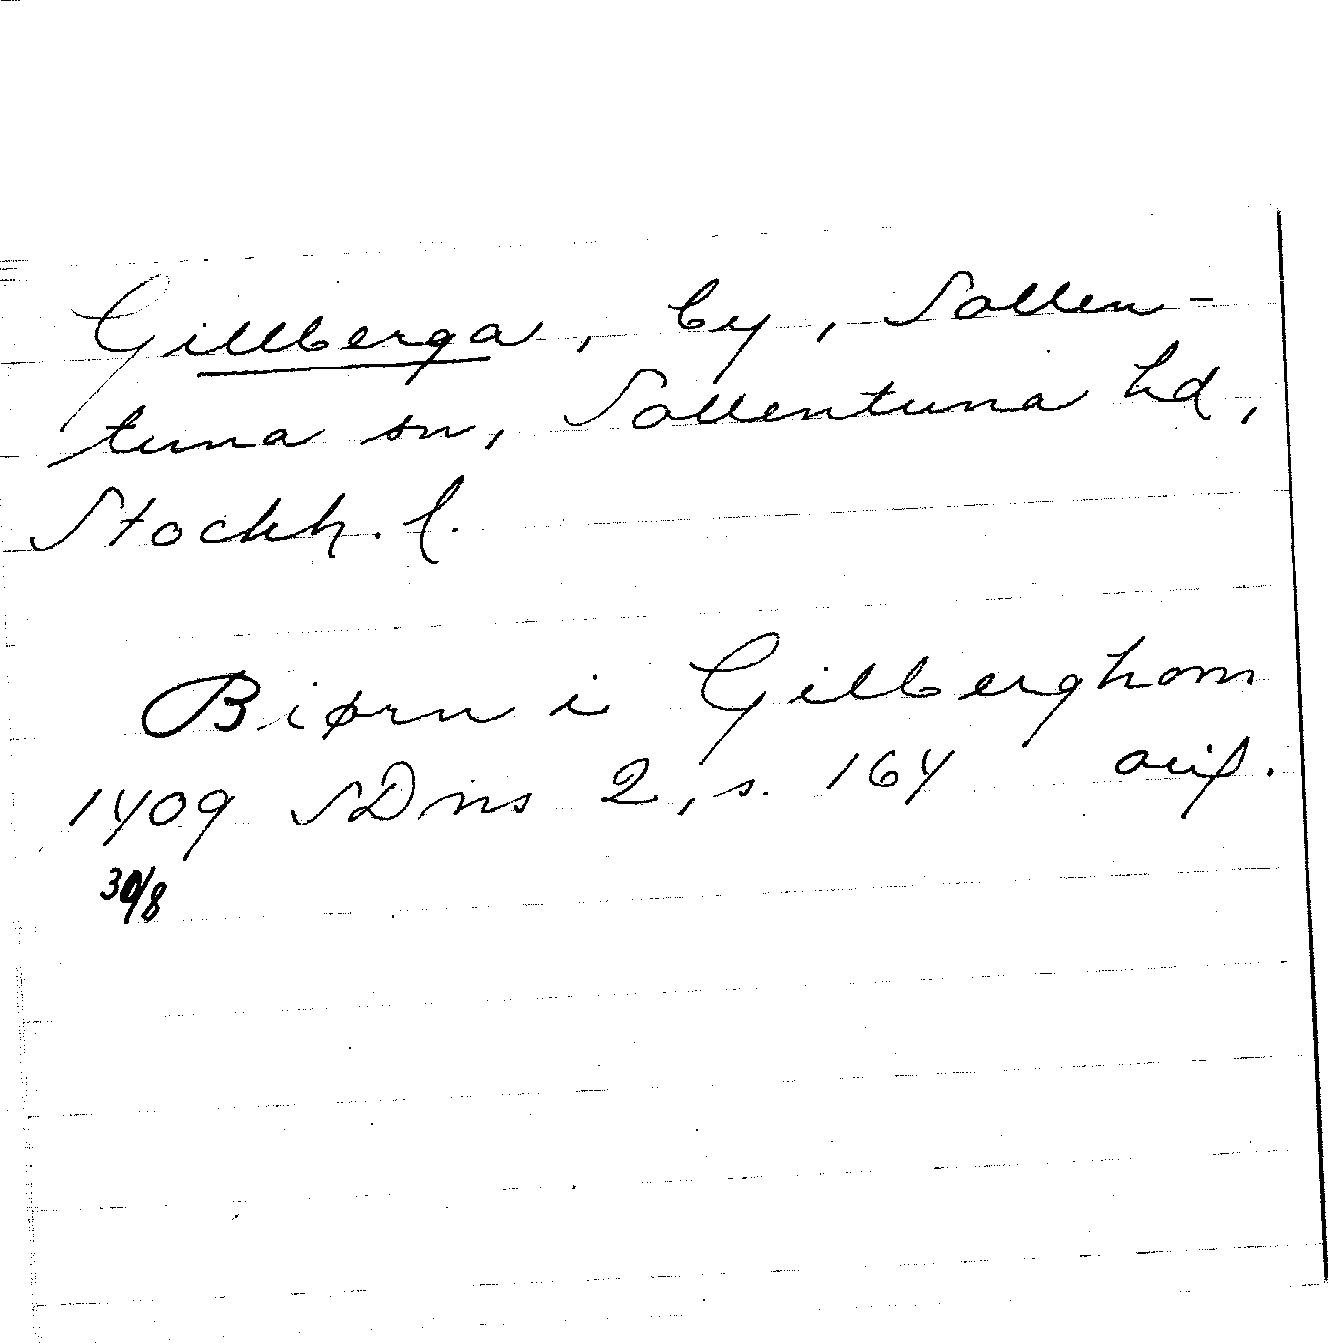 Gillberga, by, Sollen-
tuna sn, Sollentuna hd,
Stockh. l.
Biørn i Gilberghom
1409 SDns 2, s. 164 avf.
30/8